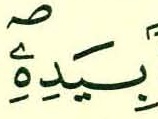 بِسَيَدِهِۦ